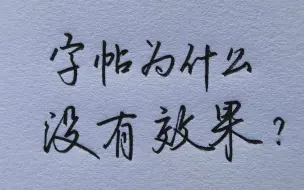 字帖为什么
没有效果？